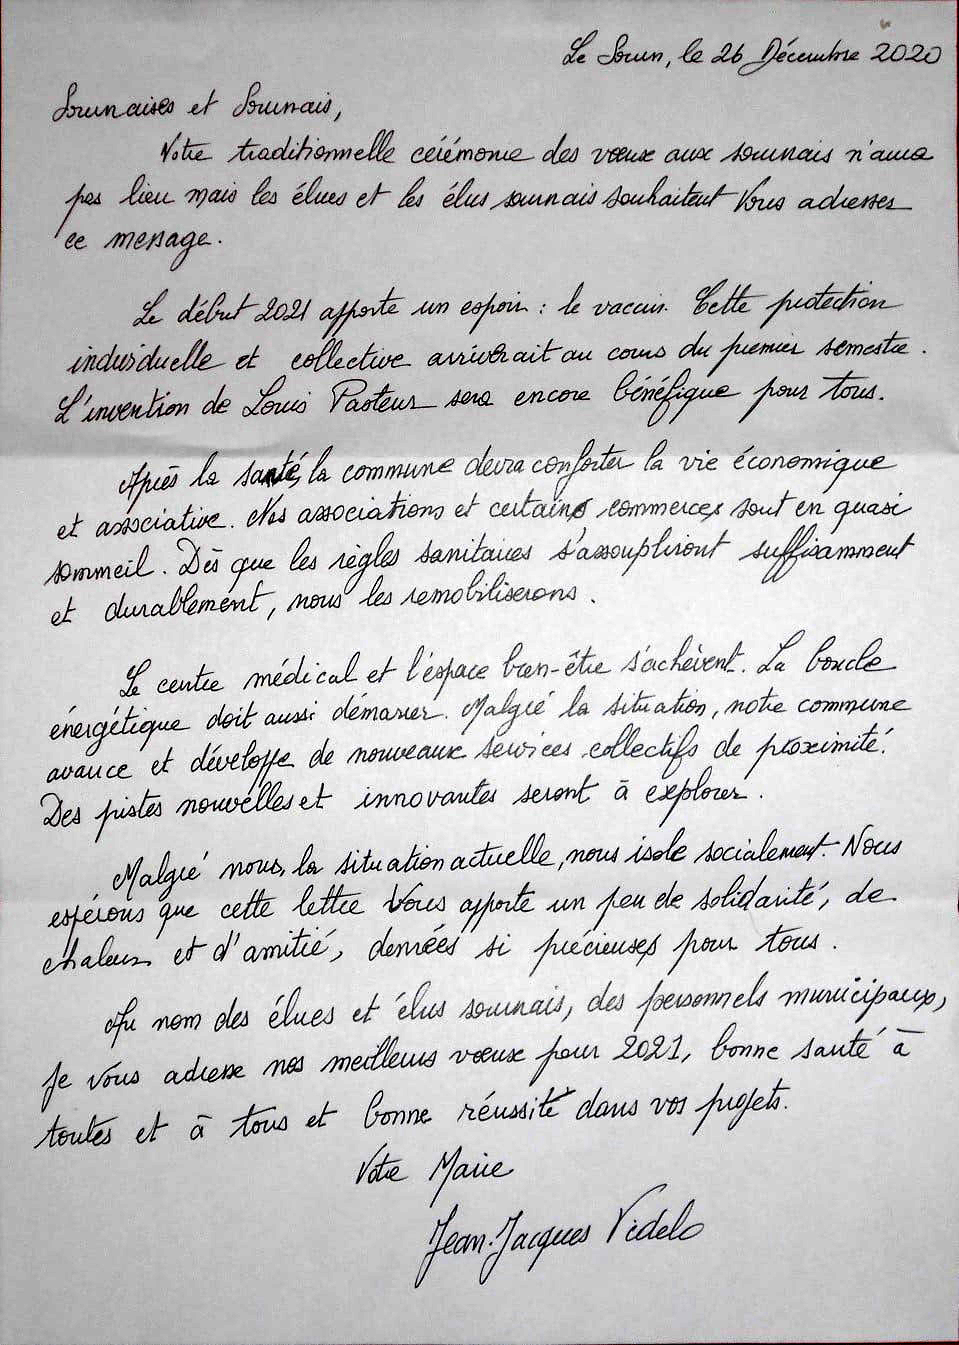 Le Sourn, le 26 Décembre 2020
Sournaises et Sournais,
Votre traditionnelle cérémonie des vœux aux sournais n'aura
pas lieu mais les élues et les élus sournais souhaitent Vous adresser
ce message.
Le début 2021 apporte un espoir : le vaccin. Cette protection
individuelle et collective arriverait au cours du premier semestre.
L'invention de Louis Pasteur sera encore bénéfique pour tous.
Après la santé, la commune devra conforter la vie économique
et associative. Nos associations et certains commerces sont en quasi
sommeil. Dès que les règles sanitaires s'assoupliront suffisamment
et durablement, nous les remobiliserons.
Le centre médical et l'espace bien-être s'achèvent. La boucle
énergétique doit aussi démarrer. Malgré la situation, notre commune
avance et développe de nouveaux services collectifs de proximité.
Des pistes nouvelles et innovantes seront à explorer.
Malgré nous, la situation actuelle, nous isole socialement. Nous
espérons que cette lettre Vous apporte un peu de solidarité, de
chaleur et d'amitié, denrées si précieuses pour tous.
Au nom des élues et élus sournais, des personnels municipaux,
je vous adresse nos meilleurs vœux pour 2021, bonne santé à
toutes et à tous et bonne réussite dans vos projets.
Votre Maire
Jean-Jacques Videlo